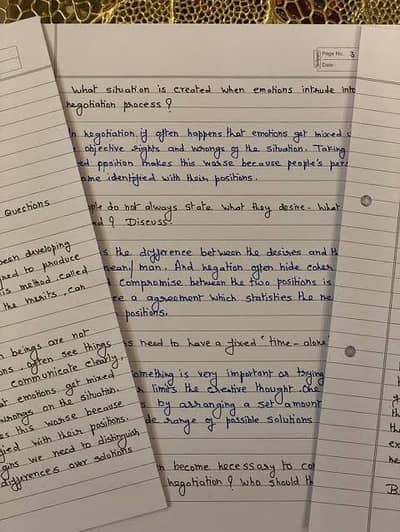 Page No. 3
Date
What situation is created when emotions intrude into
negotiation process?
n negotiation, it often happens that emotions get mixed
objective rights and wrongs of the situation. Taking
ed ppoition makes this worse because people's per
ome identified with their positions.
ple do not always state what they desire. What
ed? Discuss.
s the difference between the desires and th
mean/man. And negation often hide
compromise between the two positions is
ce a agreement which statisties the ne
positions.
s need to have a fixed 'time-alone'
omething is very important as trying
limits the creative thought. One
by arranging a set amount
de range of possible solutions
n become necessary to co
negotiation? Who should th
Questions
been developing
ned to produce
is method called
the merits, can
n beings are not
ons, often see things
communicate clearly.
at emotions get mixed
wrongs on the situation.
es this worse because
fied with their positions.
gins we need to distinguish
differences over solutions
th
th
ex
he
B